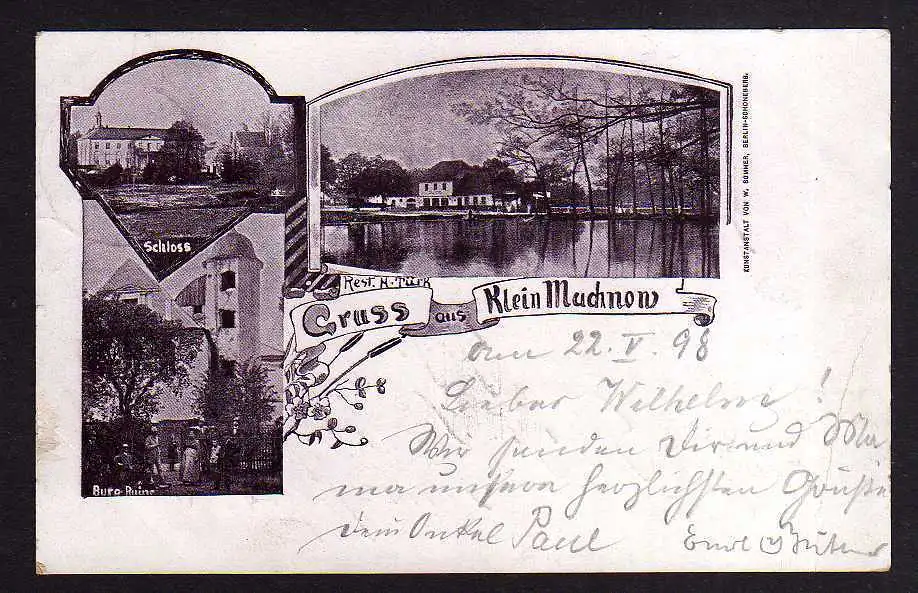 Schloss
Burg-Ruine
Rest. H. Türk
Gruss aus Klein Machnow
KUNSTANSTALT VON W. SOMMER, BERLIN-SCHÖNEBERG.
den 22. V. 98
Lieber Wilhelm!
Wir senden Dir und Ma
ma unsern herzlichsten Grüße
Dein Onkel Paul